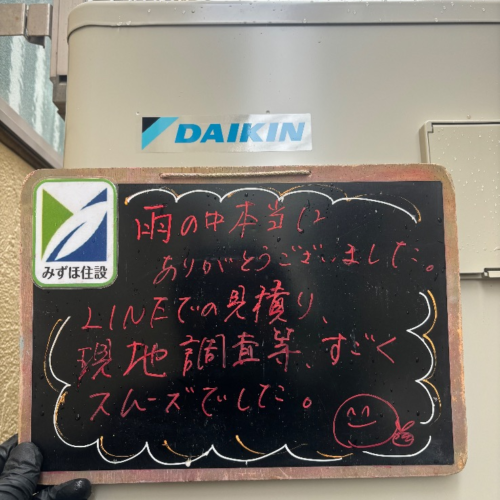 DAIKIN
みずほ住設
雨の中本当に
ありがとうございました。
LINEでの見積り、
現地調査等、すごく
スムーズでした。